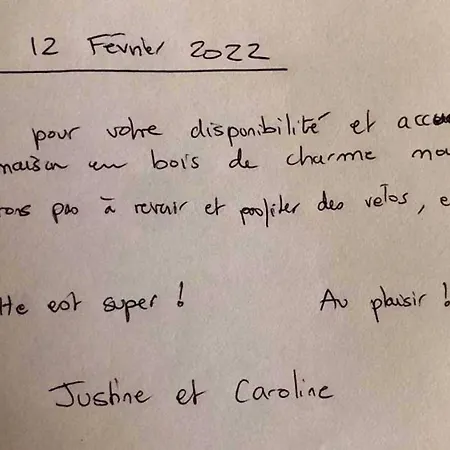 12 Février 2022
pour votre disponibilité et accue
maison en bois de charme no
rons pas à revenir et profiter des velos, e
tte est super !
Au plaisir !
Justine et Caroline